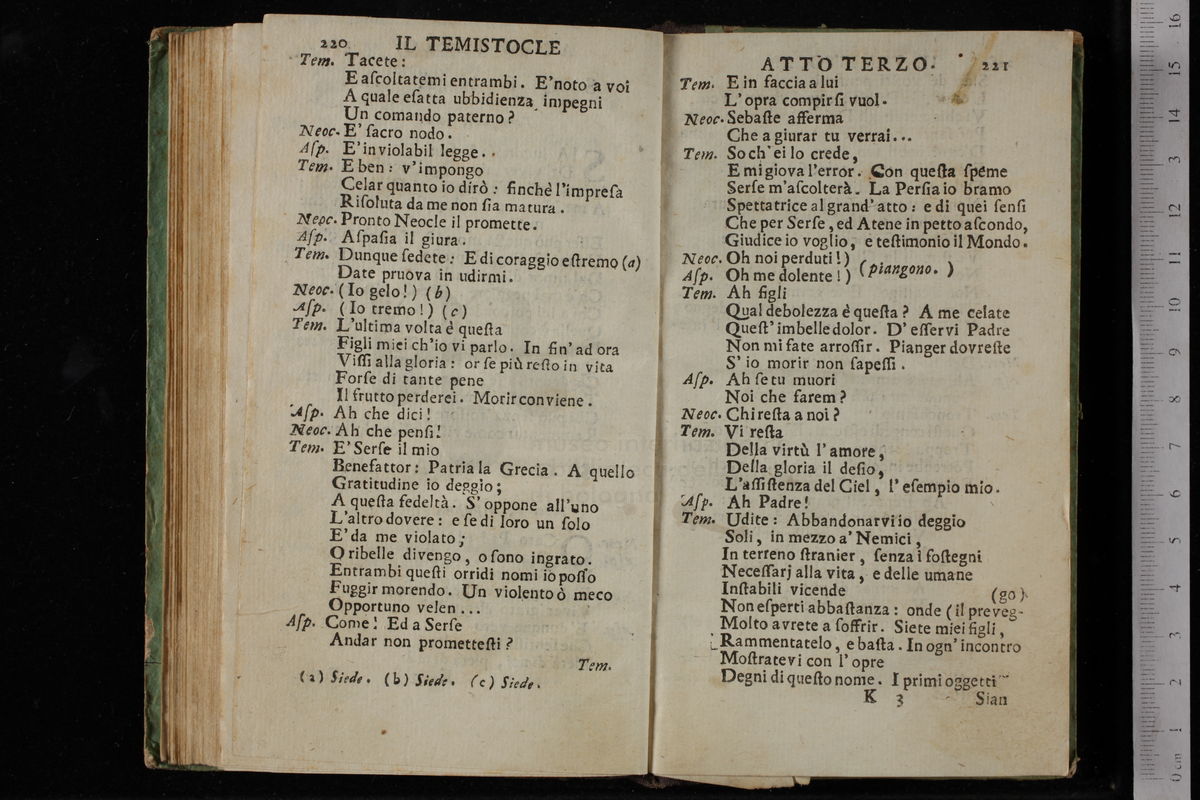 220 IL TEMISTOCLE
Tem. Tacete:
E aſcoltatemi entrambi. E' noto a voi
A quale eſatta ubbidienza impegni
Un comando paterno?
Neoc. E' ſacro nodo.
Aſp. E' inviolabil legge..
Tem. E ben: v' impongo
Celar quanto io dirò: finchè l'impreſa
Riſoluta da me non ſia matura.
Neoc. Pronto Neocle il promette.
Aſp. Aſpaſia il giura.
Tem. Dunque ſedete: E di coraggio eſtremo (a)
Date pruova in udirmi.
Neoc. (Io gelo!) (b)
Aſp. (Io tremo!) (c)
Tem. L'ultima volta è queſta
Figli miei ch'io vi parlo. In fin' ad ora
Viſſi alla gloria: or ſe più reſto in vita
Forſe di tante pene
Il frutto perderei. Morir conviene.
Aſp. Ah che dici!
Neoc. Ah che penſi!
Tem. E' Serſe il mio
Benefattor: Patria la Grecia. A quello
Gratitudine io deggio;
A queſta fedeltà. S'oppone all'uno
L'altro dovere: e ſe di loro un ſolo
E' da me violato;
O ribelle divengo, o ſono ingrato.
Entrambi queſti orridi nomi io poſſo
Fuggir morendo. Un violento ò meco
Opportuno velen...
Aſp. Come! Ed a Serſe
Andar non prometteſti?
Tem.
(a) Siede. (b) Siede. (c) Siede.
ATTO TERZO. 221
Tem. E in faccia a lui
L' opra compir ſi vuol.
Neoc. Sebaſte afferma
Che a giurar tu verrai...
Tem. So ch' ei lo crede,
E mi giova l'error. Con queſta ſpeme
Serſe m'aſcolterà. La Perſia io bramo
Spettatrice al grand' atto: e di quei ſenſi
Che per Serſe, ed Atene in petto aſcondo,
Giudice io voglio, e teſtimonio il Mondo.
Neoc. Oh noi perduti!)
Aſp. Oh me dolente!) (piangono.)
Tem. Ah figli
Qual debolezza è queſta? A me celate
Queſt' imbelle dolor. D' eſſervi Padre
Non mi fate arroſſir. Pianger dovreſte
S' io morir non ſapeſſi.
Aſp. Ah ſe tu muori
Noi che farem?
Neoc. Chi reſta a noi?
Tem. Vi reſta
Della virtù l' amore,
Della gloria il deſio,
L'aſſiſtenza del Ciel, l' eſempio mio.
Aſp. Ah Padre!
Tem. Udite: Abbandonarvi io deggio
Soli, in mezzo a' Nemici,
In terreno ſtranier, ſenza i ſoſtegni
Neceſſarj alla vita, e delle umane
Inſtabili vicende (go)
Non eſperti abbaſtanza: onde (il preveg-
Molto avrete a ſoffrir. Siete miei figli,
Rammentatelo, e baſta. In ogn' incontro
Moſtratevi con l' opre
Degni di queſto nome. I primi oggetti
K 3 Sian
16
15
14
13
12
11
10
9
8
7
6
5
4
3
2
1
0 cm